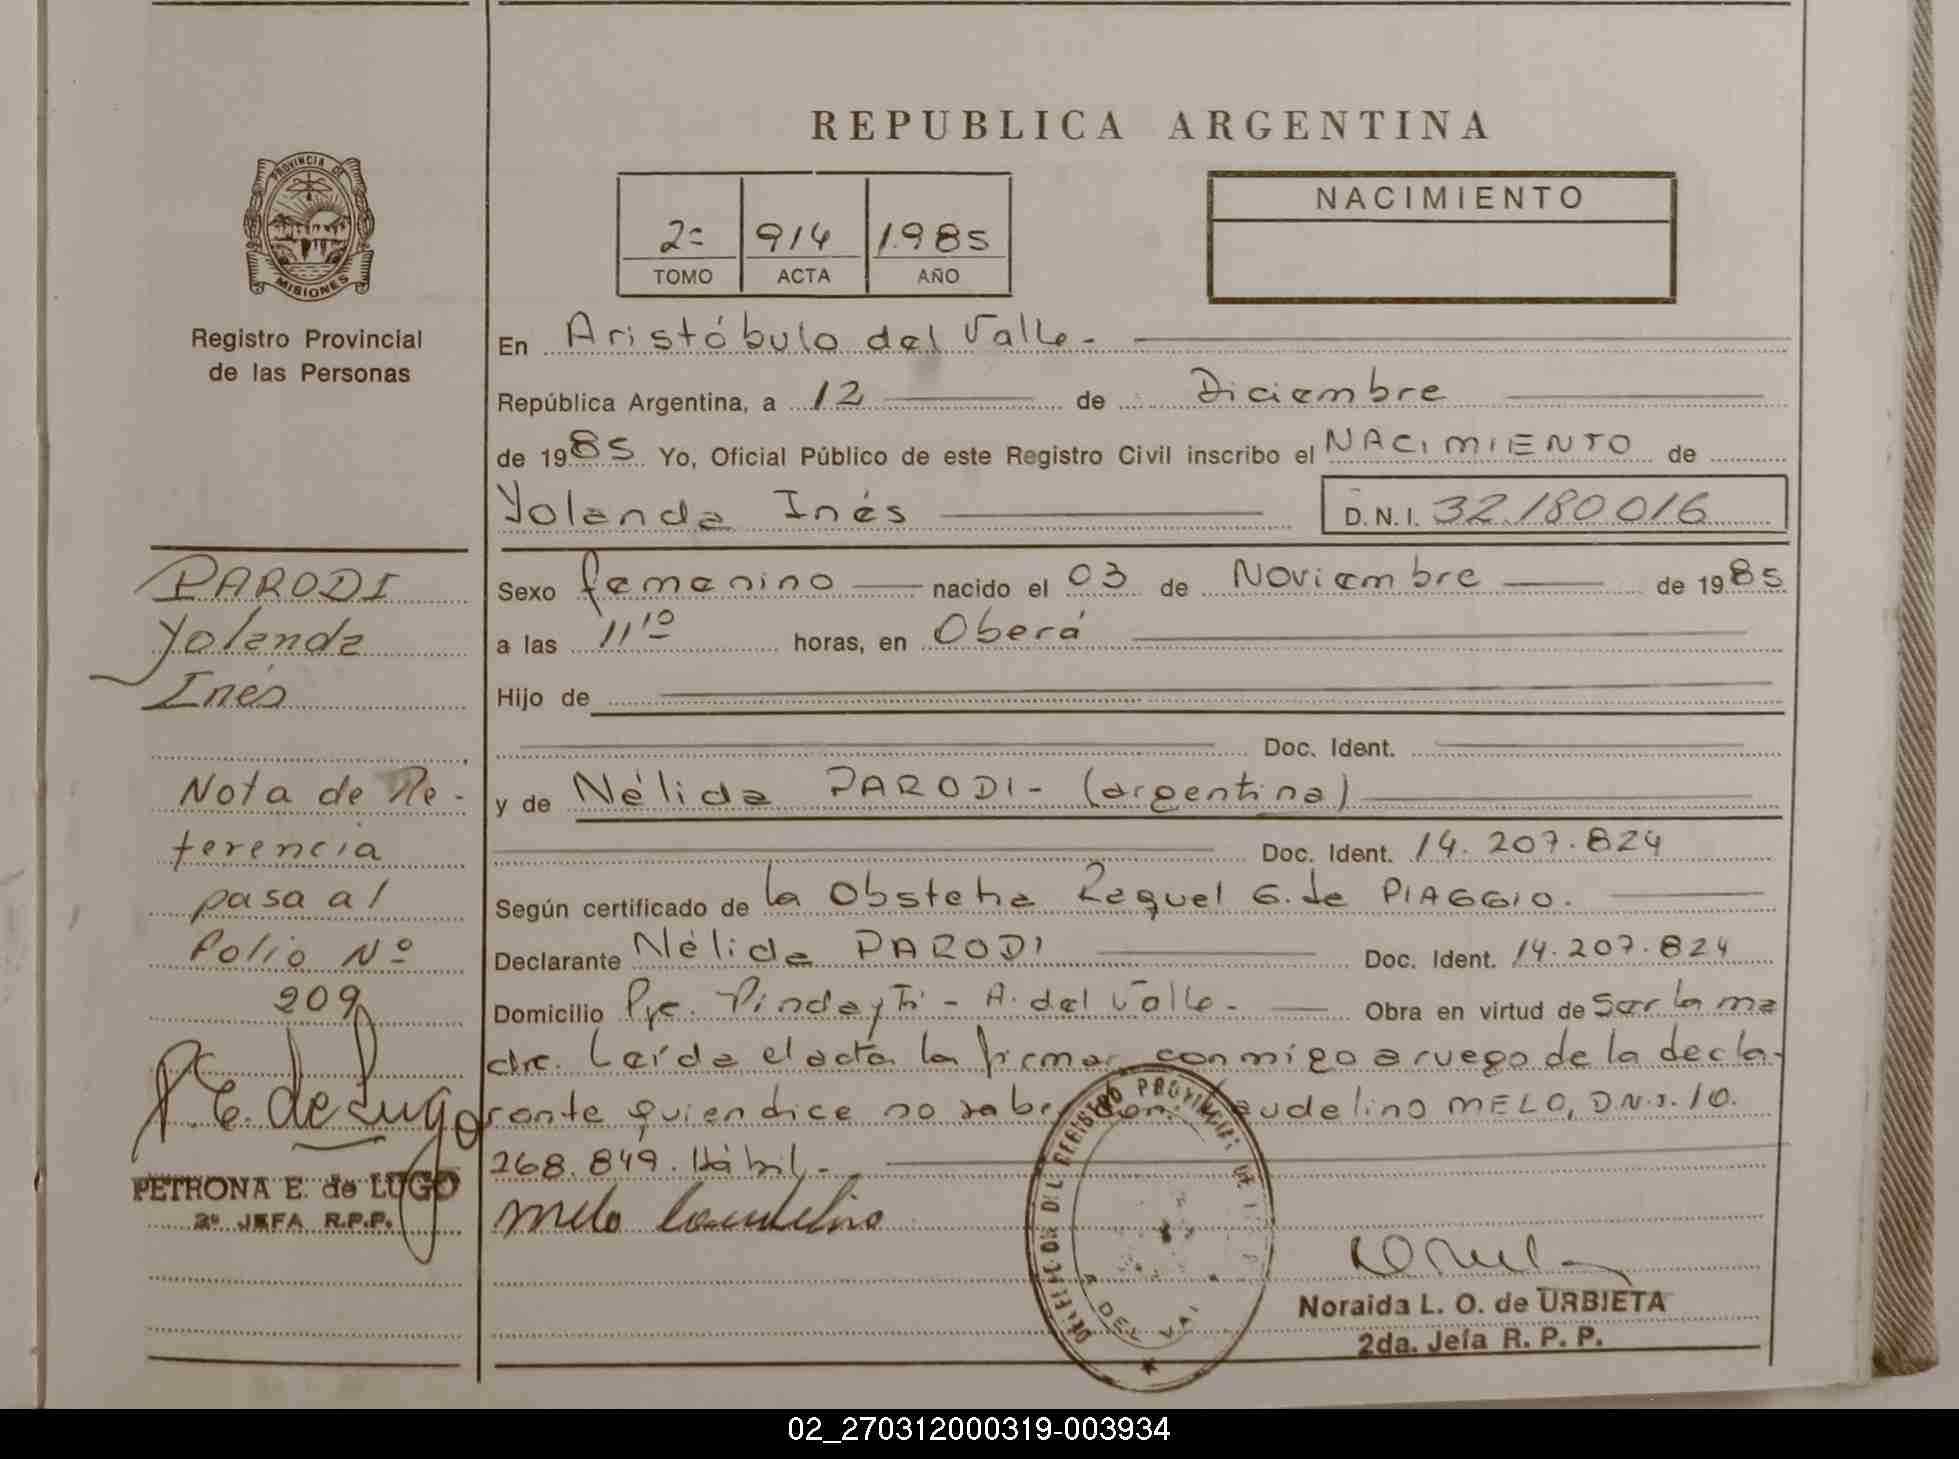 REPUBLICA ARGENTINA
PROVINCIA DE
MISIONES
Registro Provincial
de las Personas
2º 914 1985
TOMO ACTA AÑO
NACIMIENTO
En Aristóbulo del Valle.-
República Argentina, a 12 de Diciembre
de 1985 Yo, Oficial Público de este Registro Civil inscribo el NACIMIENTO de
Yolanda Inés D.N.I. 32.180.016
Sexo femenino nacido el 03 de Noviembre de 1985
a las 11 10 horas, en Oberá
Hijo de
Doc. Ident.
y de Nélida PARODI - (argentina)
Doc. Ident. 14.207.824
Según certificado de la Obstetra Raquel G. de PIAGGIO.
Declarante Nélida PARODI Doc. Ident. 14.207.824
Domicilio Pje. Pindaytí - A. del Valle.- Obra en virtud de Ser la ma
dre. Leída el acta la firma conmigo a ruego de la decla-
rante quien dice no saber don audelino MELO, D.N.I. 10.
268.849. Hábil.-
Melo Laudelino
PARODI
Yolanda
Inés
Nota de Re-
ferencia
pasa al
Folio Nº
209
P. E. de Lugo
PETRONA E. de LUGO
2º JEFA R.P.P.
DEL REGISTRO PROVINCIAL DE
A. DEL VAL
Noraida L. O. de URBIETA
2da. Jefa R. P. P.
02_270312000319-003934